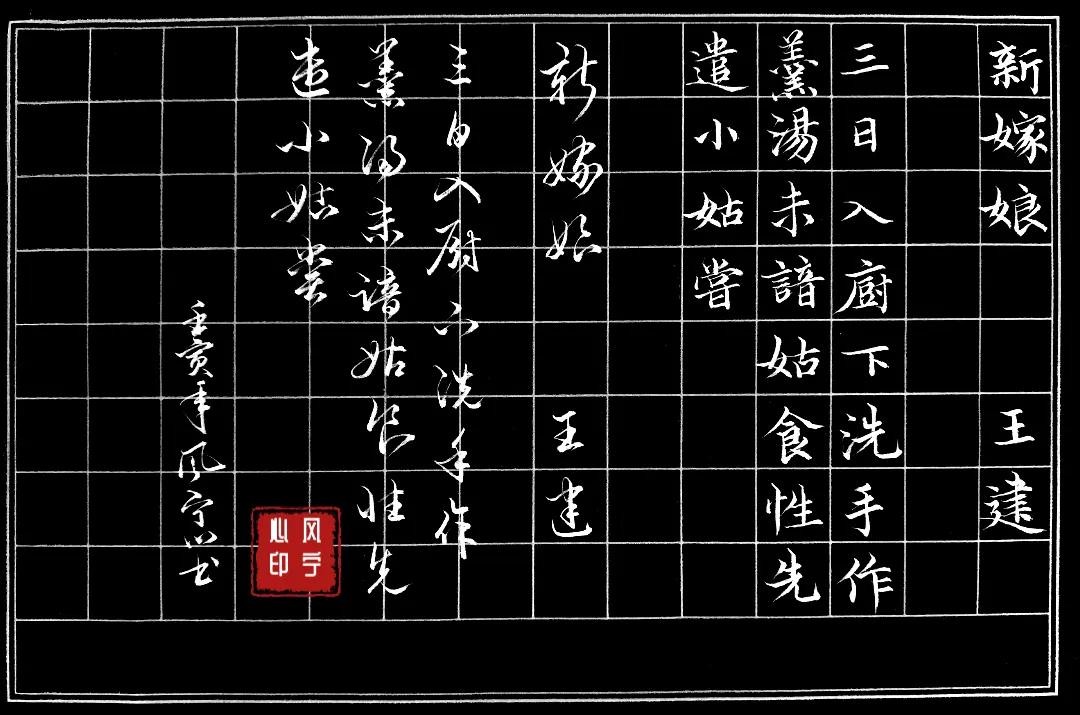 新嫁娘 王建
三日入廚下洗手作
羹湯未諳姑食性先
遣小姑嘗
新嫁娘 王建
三日入廚下洗手作
羹湯未諳姑食性先
遣小姑嘗
壬寅年风宁心书
风宁
心印